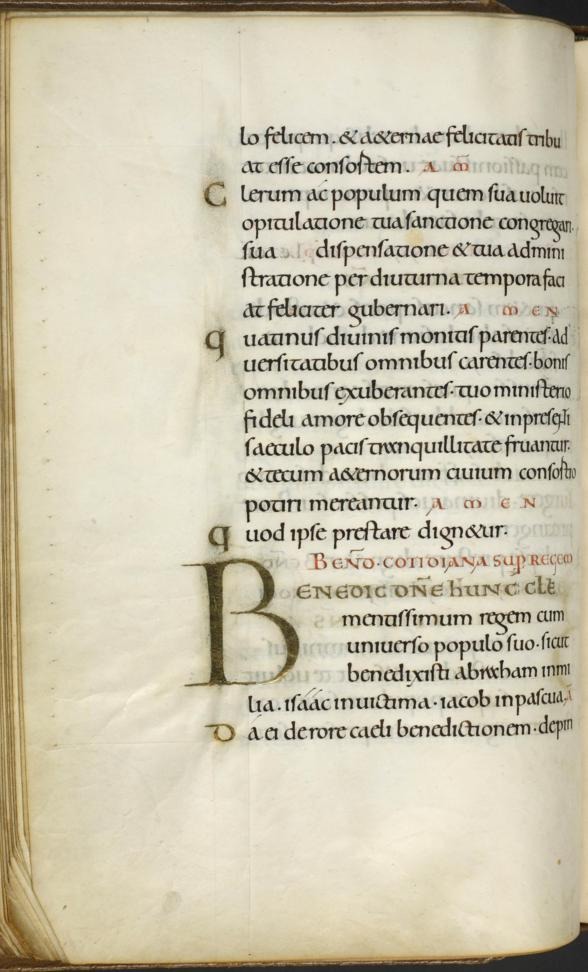 lo felicem. & a&ernae felicitatis tribu
at esse consortem. A M
Clerum ac populum quem sua voluit
opitulatione tua sanctione congregari.
sua dispensatione & tua admini
stratione per diuturna tempora faci
at feliciter gubernari. A M E N
Quatinus divinis monitis parentes. ad
versitatibus omnibus carentes. bonis
omnibus exuberantes. tuo ministerio
fideli amore obsequentes. & in presenti
saeculo pacis tranquillitate fruantur.
& tecum a&ernorum civium consortio
potiri mereantur. A M E N
Quod ipse prestare dign&ur.
BEND. COTIDIANA SUP REGEM
BENEDIC DNE hUNC CLE
mentissimum regem cum
universo populo suo. sicut
benedixisti abraham in mi
lia. isaac in victima. iacob in pascua.
Da ei de rore caeli benedictionem. de pin